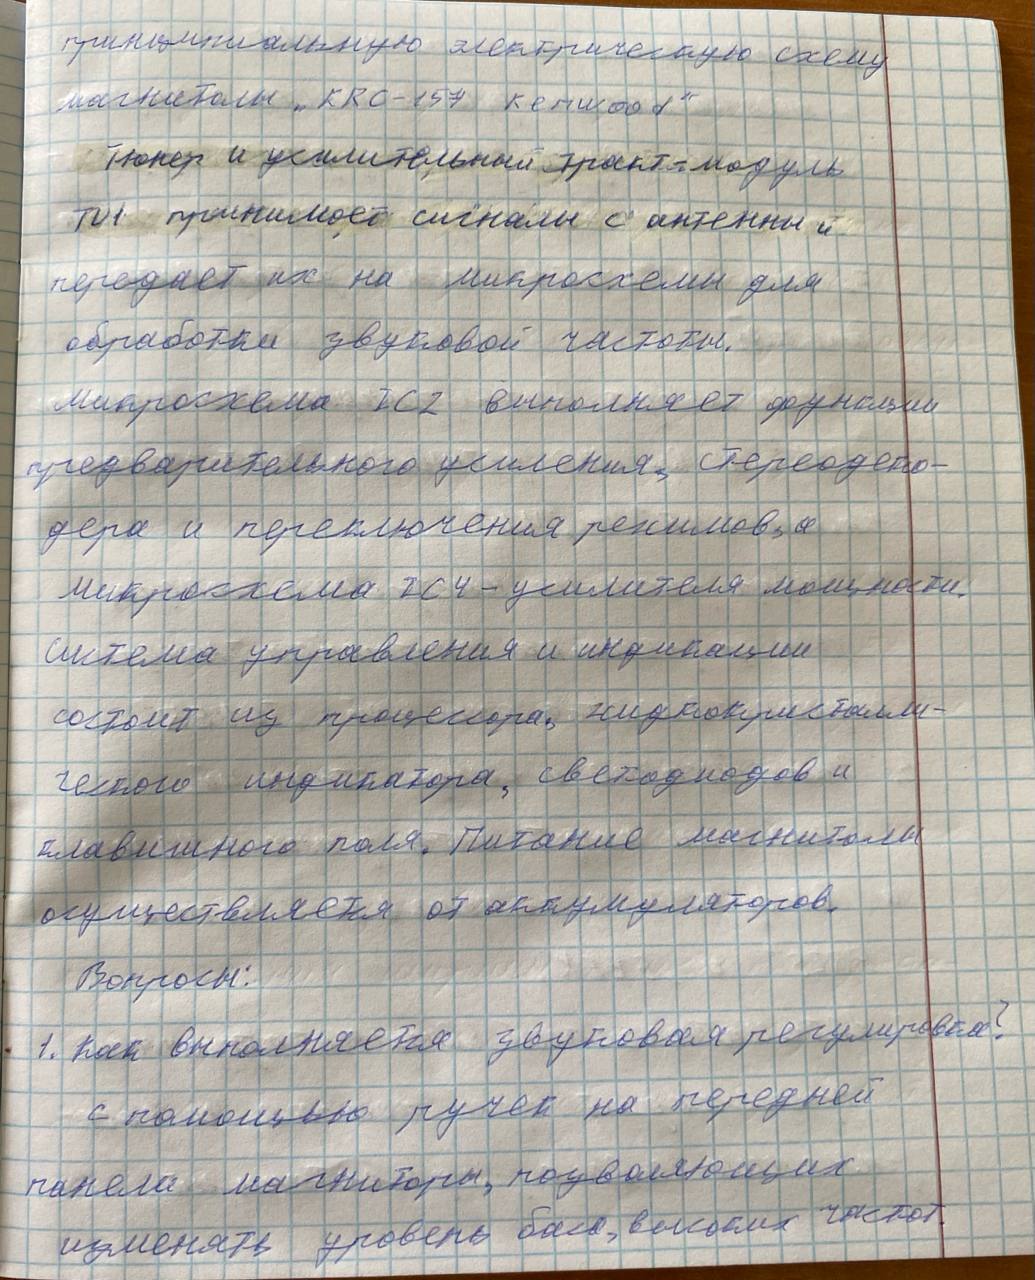 принципиальную электрическую схему
магнитолы „KRC-157 Kenwood"
Тюнер и усилительный тракт-модуль
TU1 принимает сигналы с антенны и
передает их на микросхемы для
обработки звуковой частоты.
Микросхема IC2 выполняет функции
предварительного усиления, стереодеко-
дера и переключения режимов, а
микросхема IC4 - усилителя мощности.
Система управления и индикации
состоит из процессора, жидкокристалли-
ческого индикатора, светодиодов и
клавишного поля. Питание магнитолы
осуществляется от аккумуляторов.
Вопросы:
1. Как выполняется звуковая регулировка?
с помощью ручек на передней
панели магниторы, позволяющих
изменять уровень баса, высоких частот.